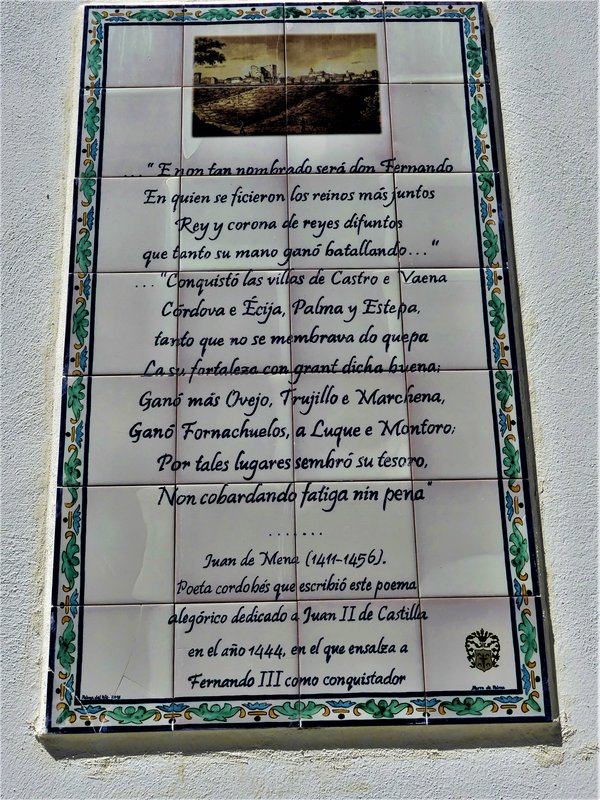 ..."E non tan nombrado será don Fernando
En quien se ficieron los reinos más juntos
Rey y corona de reyes difuntos
que tanto su mano ganó batallando..."
..."Conquistó las villas de Castro e Vaena
Córdova e Écija, Palma y Estepa,
tanto que no se membrava do quepa
La su fortaleza con grant dicha buena;
Ganó más Ovejo, Trujillo e Marchena,
Ganó Fornachuelos, a Luque e Montoro;
Por tales lugares sembró su tesoro,
Non cobardando fatiga nin pena"
.......
Juan de Mena (1411-1456).
Poeta cordobés que escribió este poema
alegórico dedicado a Juan II de Castilla
en el año 1444, en el que ensalza a
Fernando III como conquistador
Palma del Río